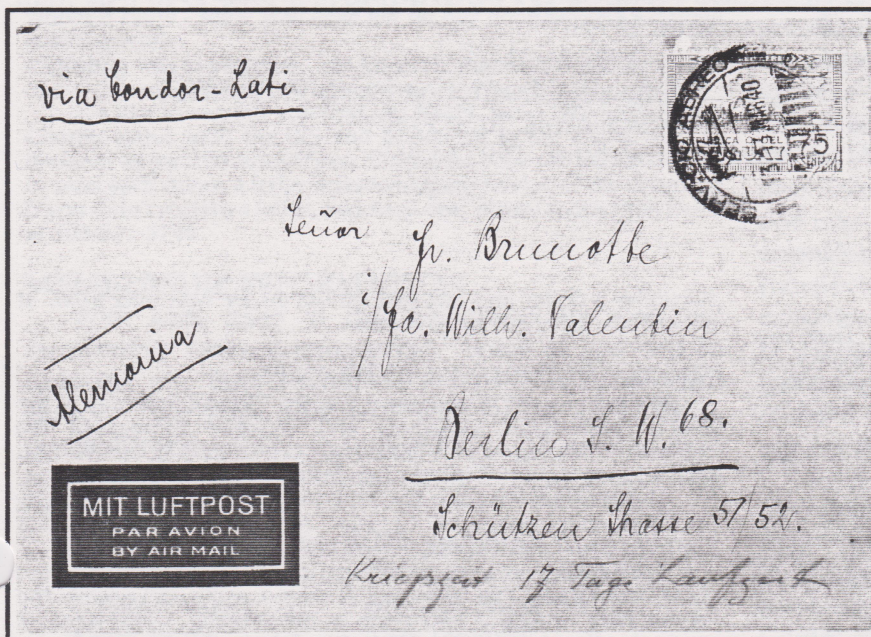 via Condor-Lati
SERVICIO AEREO
MAR 40
75
Señor Fr. Brunotte
i/Fa. Wilh. Valentin
Alemania
Berlin S. W. 68.
Schützen Strasse 51/52.
MIT LUFTPOST
PAR AVION
BY AIR MAIL
Kriegszeit 17 Tage Laufzeit